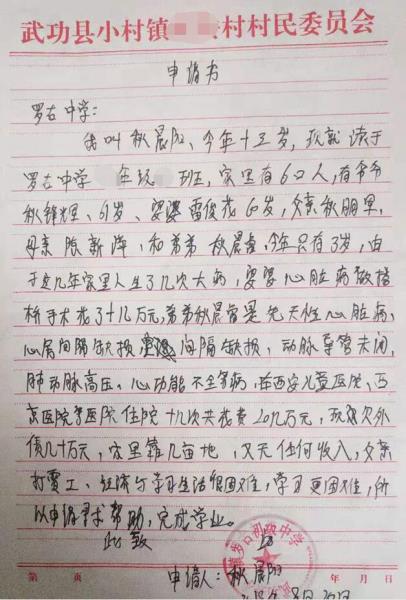 武功县小村镇 村村民委员会
申请书
罗古中学:
我叫秋晨阳、今年十五岁,现就读于
罗古中学 年级 班,家里有6口人,有爷爷
秋锋辉、61岁、婆婆雷俊花60岁,父亲秋朋
母亲陈新萍,和弟弟秋晨睿,今年只有3岁,由
于这几年家里人生了几次大病,婆婆心脏病做搭
桥手术花了十几万元,弟弟秋晨睿是先天性心脏病,
心房间隔缺损 间隔缺损、动脉导管未闭,
肺动脉高压、心功能不全等病,在西安儿童医院、西
京医院等医院住院十几次共花费20几万元,现欠外
债几十万元,家里靠几亩地,又无任何收入,父亲
打零工、经济与学习生活很困难,学习更困难,所
以申请寻求帮助,完成学业。
此致
初级中学
申请人:秋晨阳
第 页 年 月 日